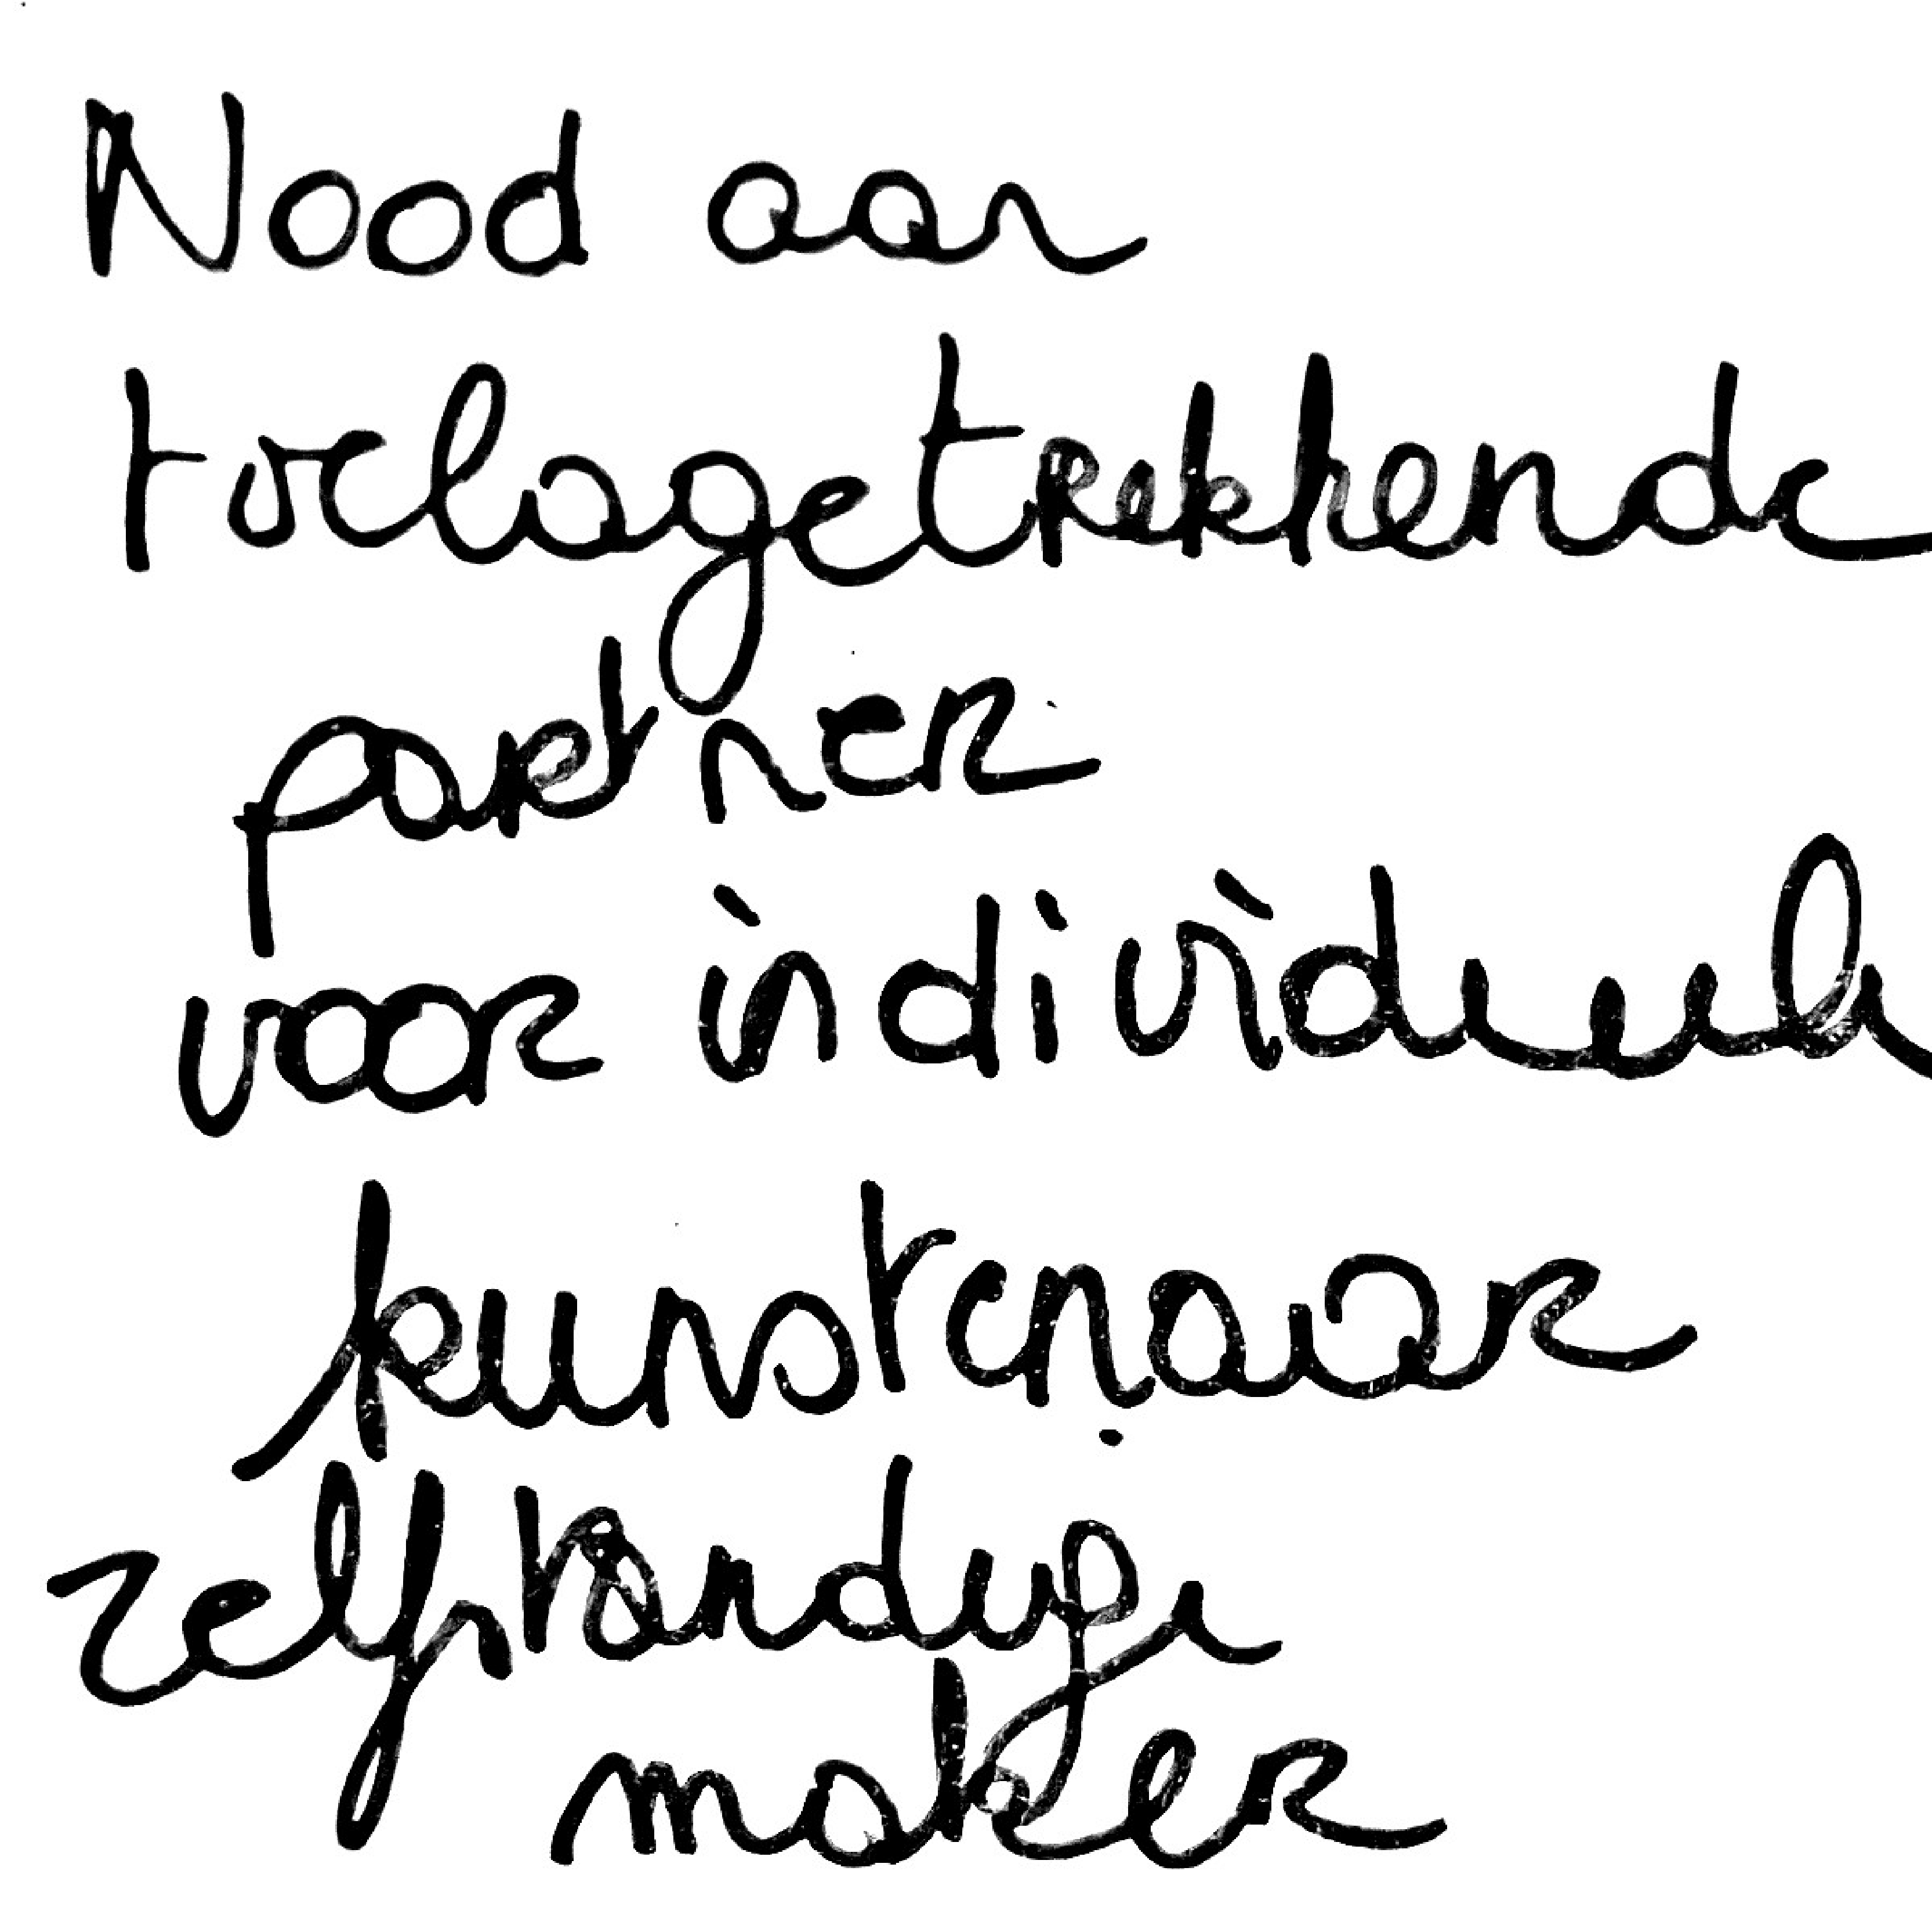 Nood aan
toelagetrekkende
partner
voor individuele
kunstenaar
zelfstandige
maker